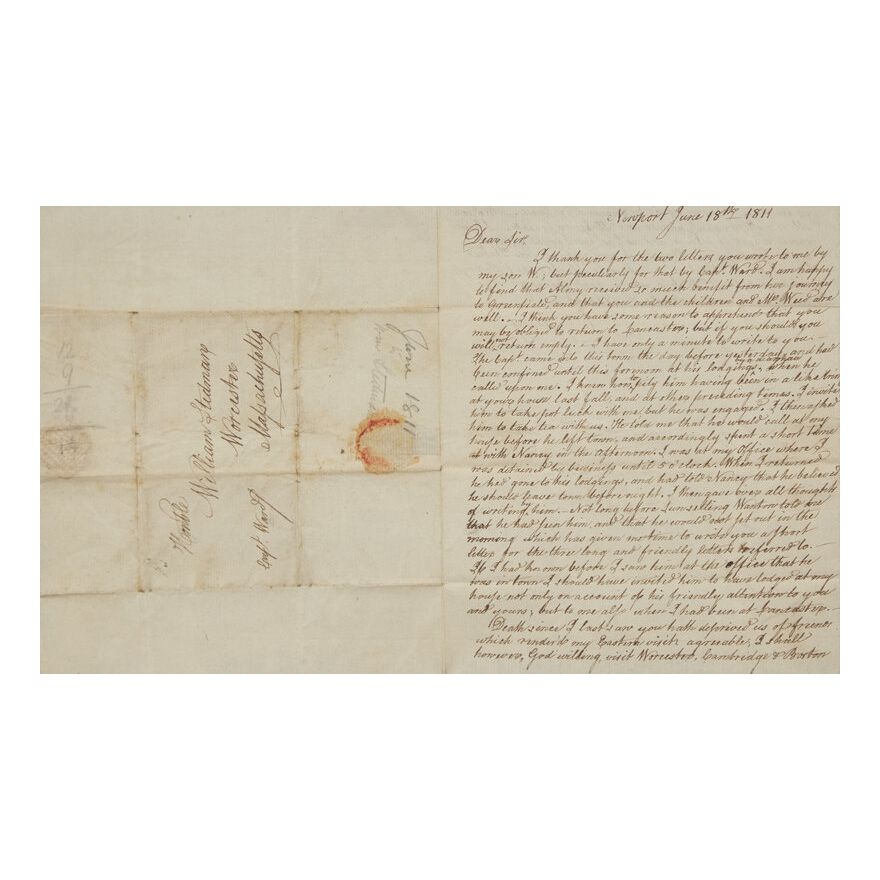 Newport June 18th 1811
Dear Sir,
I thank you for the two letters you wrote to me by
my son W; but peculiarly for that by Capt. Ward. I am happy
to find that Almy received so much benefit from her journey
to Greenfield, and that you and the children and Mrs Weed are
well. I think you have some reason to apprehend that you
may be obliged to return to Lancaster; but if you should you
will not return empty. I have only a minute to write to you.
The Capt came into this town the day before yesterday, and had
been confined until this fornoon at his lodgings, when he
called upon me. I knew him having been
at your house last fall, and at other preceding times. I invited
him to take pot luck with me, but he was engaged. I then asked
him to take tea with us. He told me that he would call at my
house before he left town, and accordingly spent a short time
with Nancy in the afternoon. I was at my Office where I
was detained by business until 5 oclock. When I returned
he had gone to his lodgings, and had told Nancy that he believed
he should leave town before night. I then gave over all thoughts
of writing by him. Not long before sunsetting Wanton told me
that he had seen him, and that he would not set out in the
morning which has given me time to write you a short
letter for the three long and friendly letters referred to.
If I had known before I saw him at the office that he
was in town I should have invited him to have lodged at my
house not only on account of his friendly attention to you
and yours; but to me also when I had been at Lancaster.
Death since I last saw you hath deprived us of friends
which renderd my Eastern visits agreeable, I shall
however, God willing visit Worcester, Cambridge & Boston
Honble
William Stedman
Worcester
Massachusetts
Capt Ward
June 1811
12
9